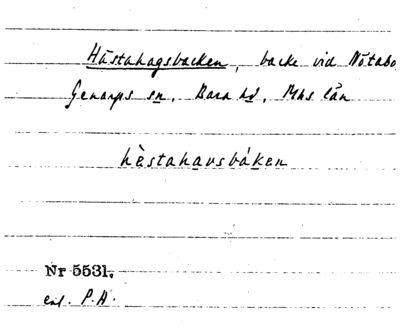 Hästahagsbacken, backe vid Nötabo,
Genarps sn, Bara hd, Mhs län
hèstahavsbáken
Nr 5531,
enl. P.A.